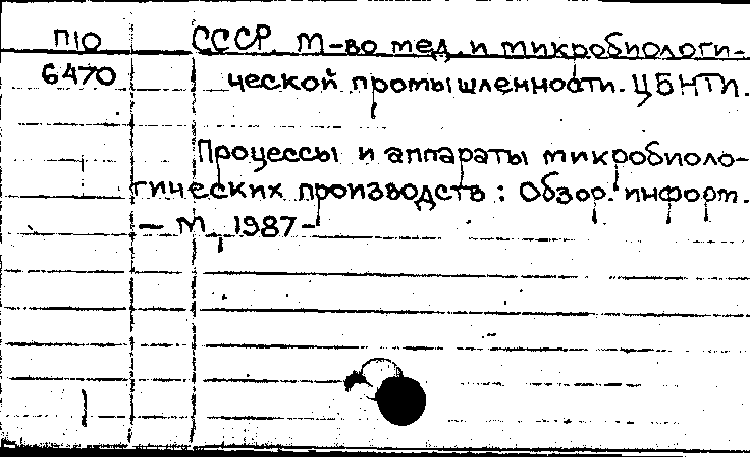 П10 СССР. М-во мед. и микробиологи-
6470 ческой промышленности. ЦБНТИ.
Процессы и аппараты микробиоло-
гических производств: Обзор. информ.
— М., 1987 -